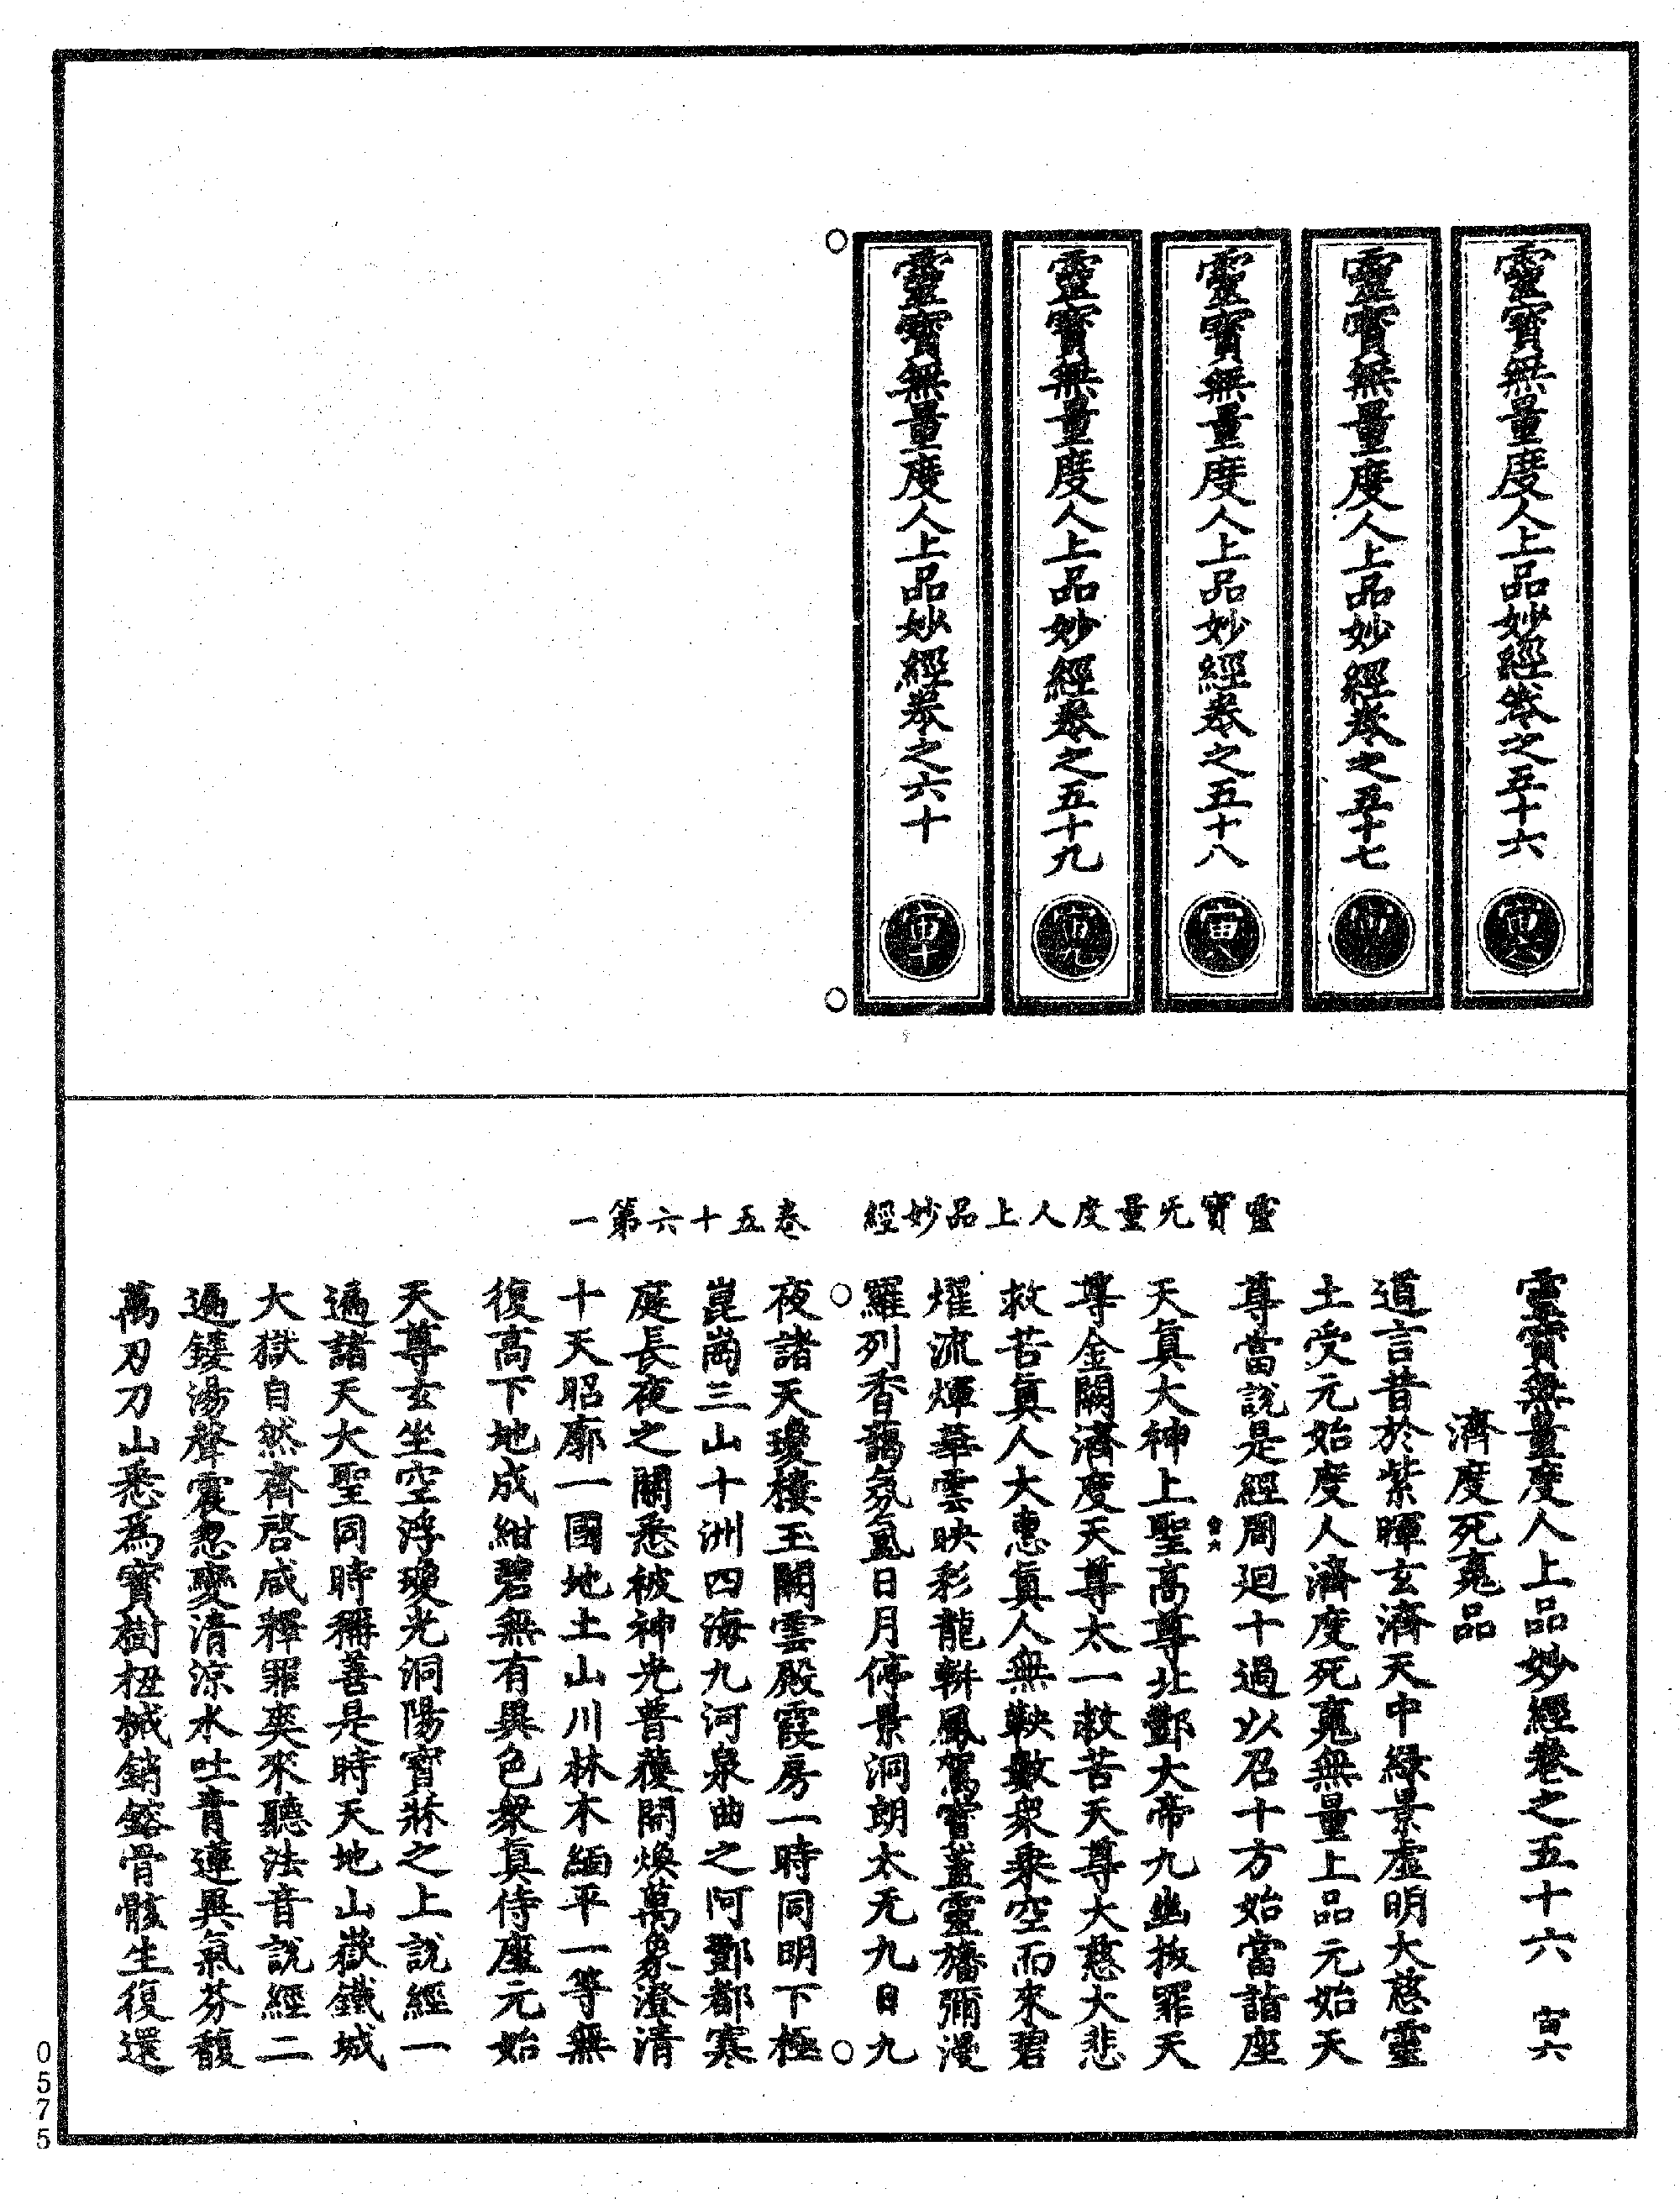 靈寳無量度人上品妙經卷之五十六
寅六
靈寳無量度人上品妙經卷之五十七
靈寳無量度人上品妙經卷之五十八
寅八
靈寳無量度人上品妙經卷之五十九
寅九
靈寳無量度人上品妙經卷之六十
寅十
靈寳无量度人上品妙經　卷五十六第一
靈寳無量度人上品妙經卷之五十六　寅六
濟度死䰟品
道言昔於紫暉玄濟天中緑景虛明大慈靈
土受元始度人濟度死䰟無量上品元始天
尊當說是經周迴十過以召十方始當詣座
天真大神上聖高尊北酆大帝九幽拔罪天
尊金闕濟度天尊太一救苦天尊大慈大悲
救苦真人大惠真人無鞅數衆乘空而來碧
燿流煇華雲映彩龍軿鳳駕寳蓋靈旛彌漫
羅列香靄氛氳日月停景洞朗太无九日九
夜諸天瓊樓玉闕雲殿霞房一時同明下極
崑崗三山十洲四海九河泉曲之阿酆都寒
庭長夜之關悉被神光普覆開煥萬象澄清
十天昭廓一國地土山川林木緬平一等無
復高下地成紺碧無有異色衆真侍座元始
天尊玄坐空浮瓊光洞陽寳牀之上說經一
遍諸天大聖同時稱善是時天地山嶽鐵城
大獄自然齊啓咸釋罪爽來聽法音說經二
遍鑊湯聲震忽變清涼水吐青蓮異氣芬馥
萬刃刀山悉爲寳樹杻械銷鎔骨骸生復還
0575